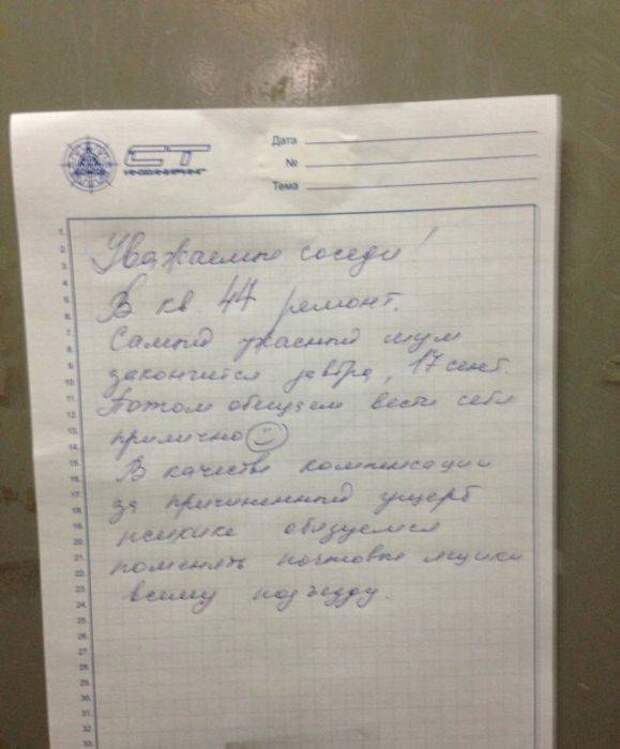 СТ
ИНЖИНИРИНГ
Дата
№
Тема
Уважаемые соседи!
В кв. 44 ремонт.
Самый ужасный шум
закончится завтра, 17 сент.
Потом обещаем вести себя
прилично
В качестве компенсации
за причиненный ущерб
психике обязуемся
поменять почтовые ящики
всему подъезду.